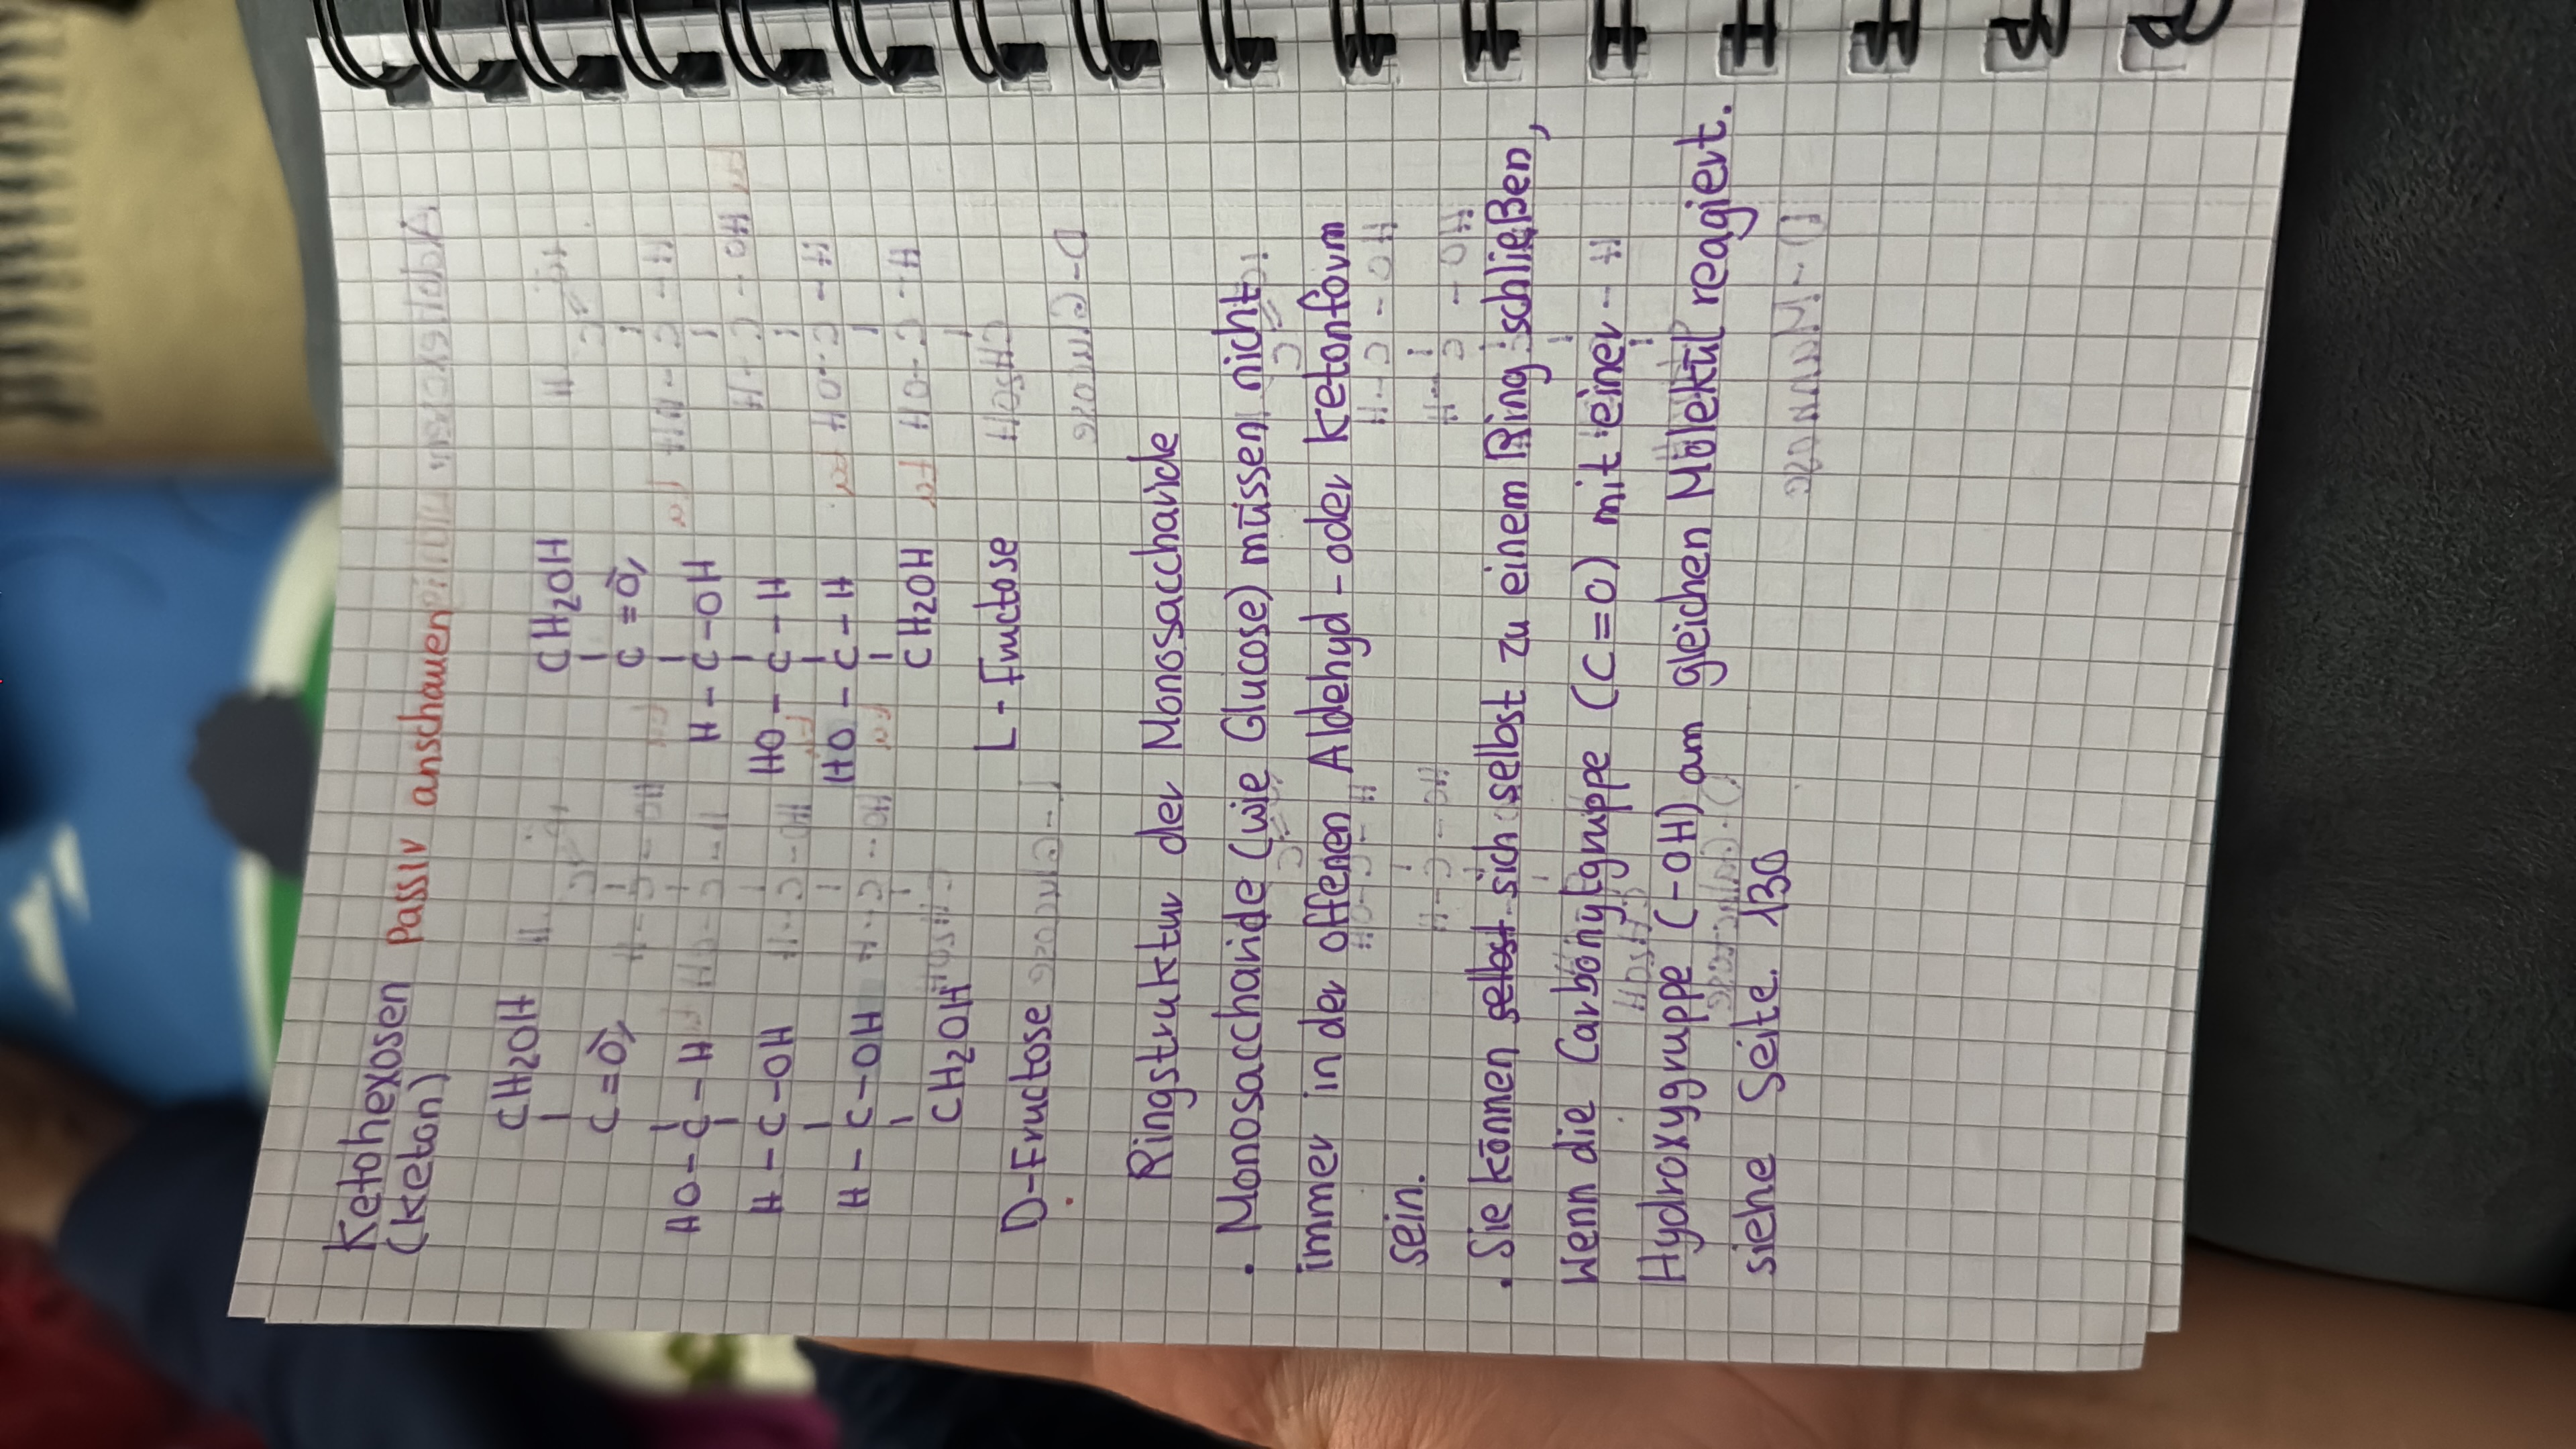 Ketohexosen Passiv anschauen
(keton)
CH2OH CH2OH
| |
C=O C=O
| |
HO-C-H H-C-OH
| |
H-C-OH HO-C-H
| |
H-C-OH HO-C-H
| |
CH2OH CH2OH
D-Fructose L-Fructose
Ringstruktur der Monosaccharide
. Monosaccharide (wie Glucose) müssen nicht
immer in der offenen Aldehyd-oder ketonform
sein.
. Sie können selbst sich selbst zu einem Ring schließen,
Wenn die Carbonylgruppe (C=O) mit einer
Hydroxygruppe (-OH) am gleichen Molekül reagiert.
siehe Seite 130